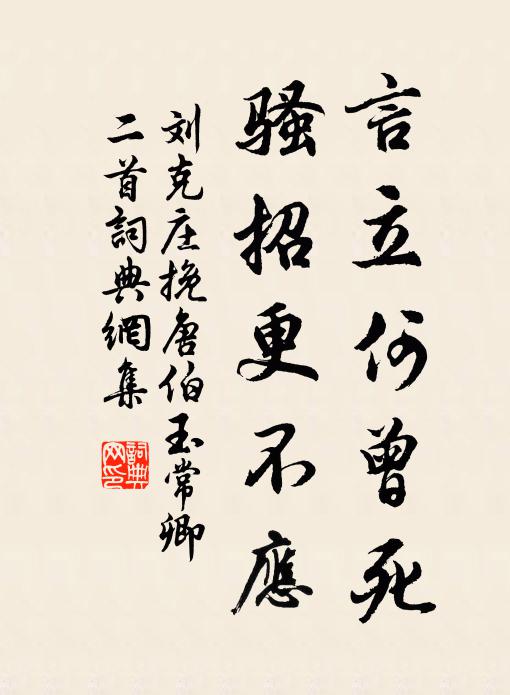 言立何曾死
騷招更不應
刘克庄挽唐伯玉常卿
二首詞典網集
詞典网印